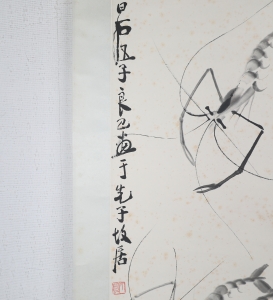 白石四子良已画于先子故居